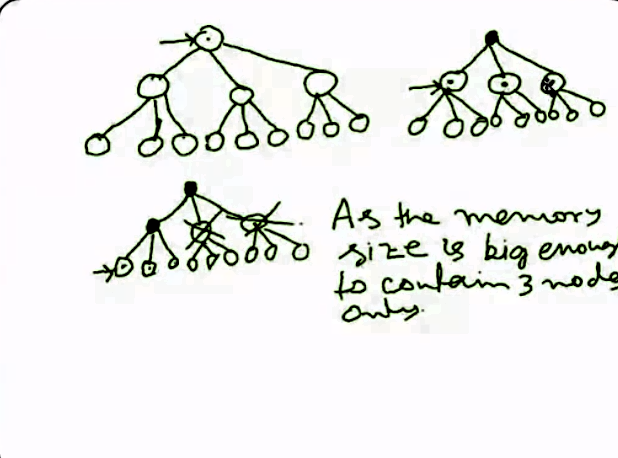 As the memory
size is big enough
to contain 3 nodes
only.